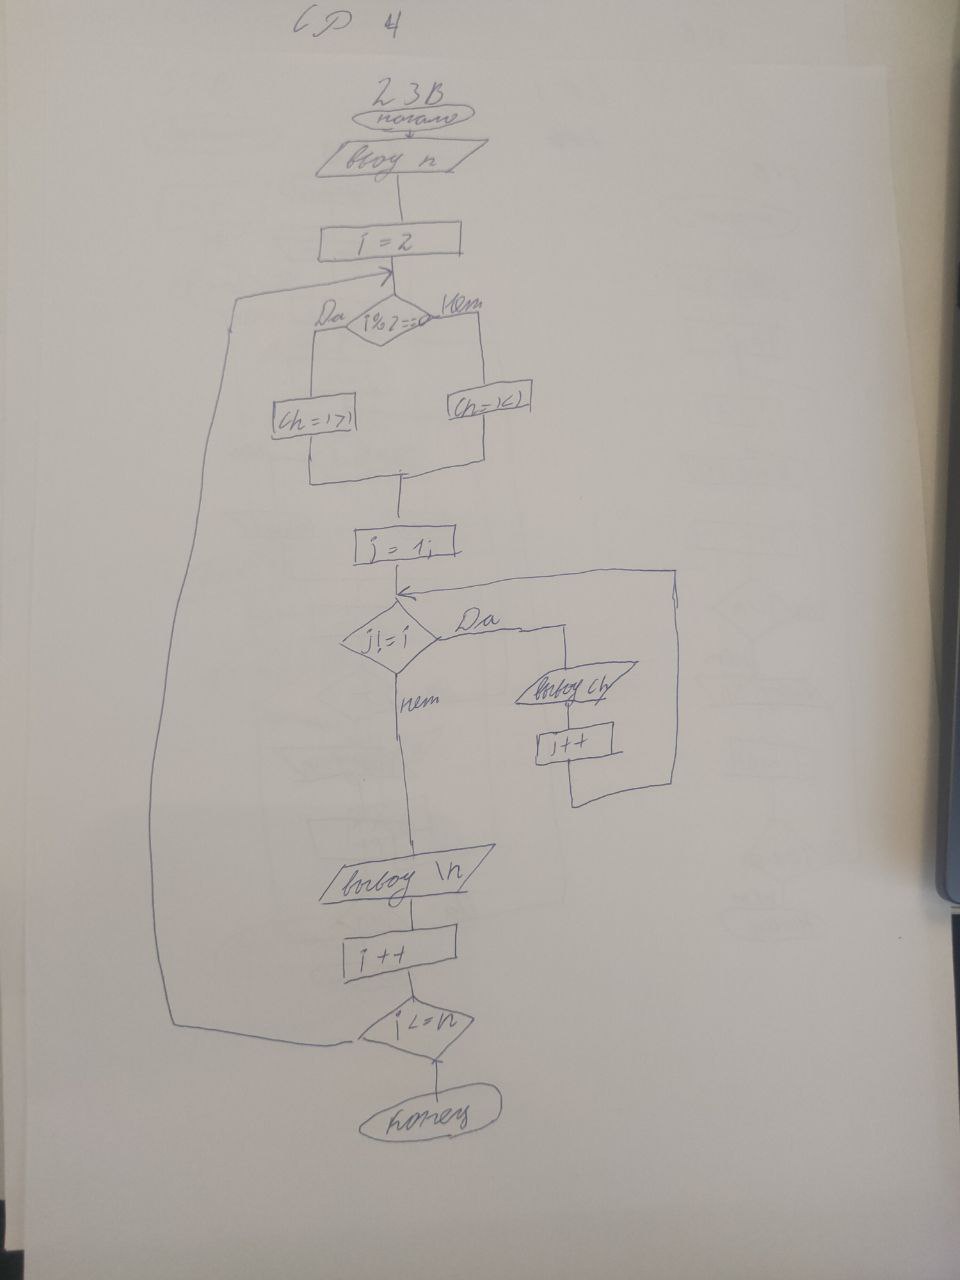 СР 4
2 3В
начало
ввод n
i = 2
Да
i%2==0
Нет
ch='>'
ch='<'
j = 1;
j!=i
Да
нет
вывод ch
j++
вывод \n
i ++
i<=n
конец